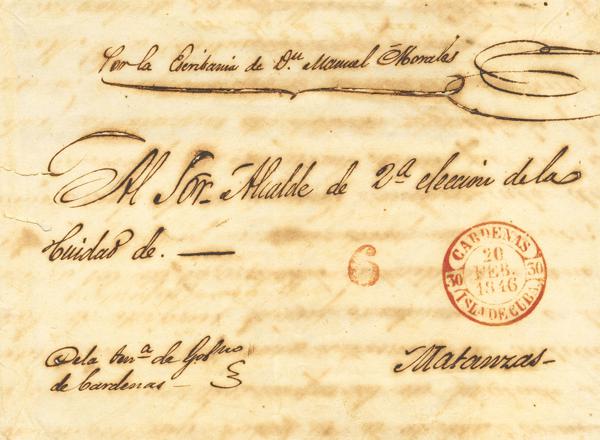 Por la Escribania de Dn. Manuel Morales
Al Sor. Alcalde de 2ª eleccion de la
Ciudad de. —
6
CARDENAS
20
FEB.
1846
30 30
ISLA DE CUBA.
De la tenª de Gobno
de Cardenas —
Matanzas –